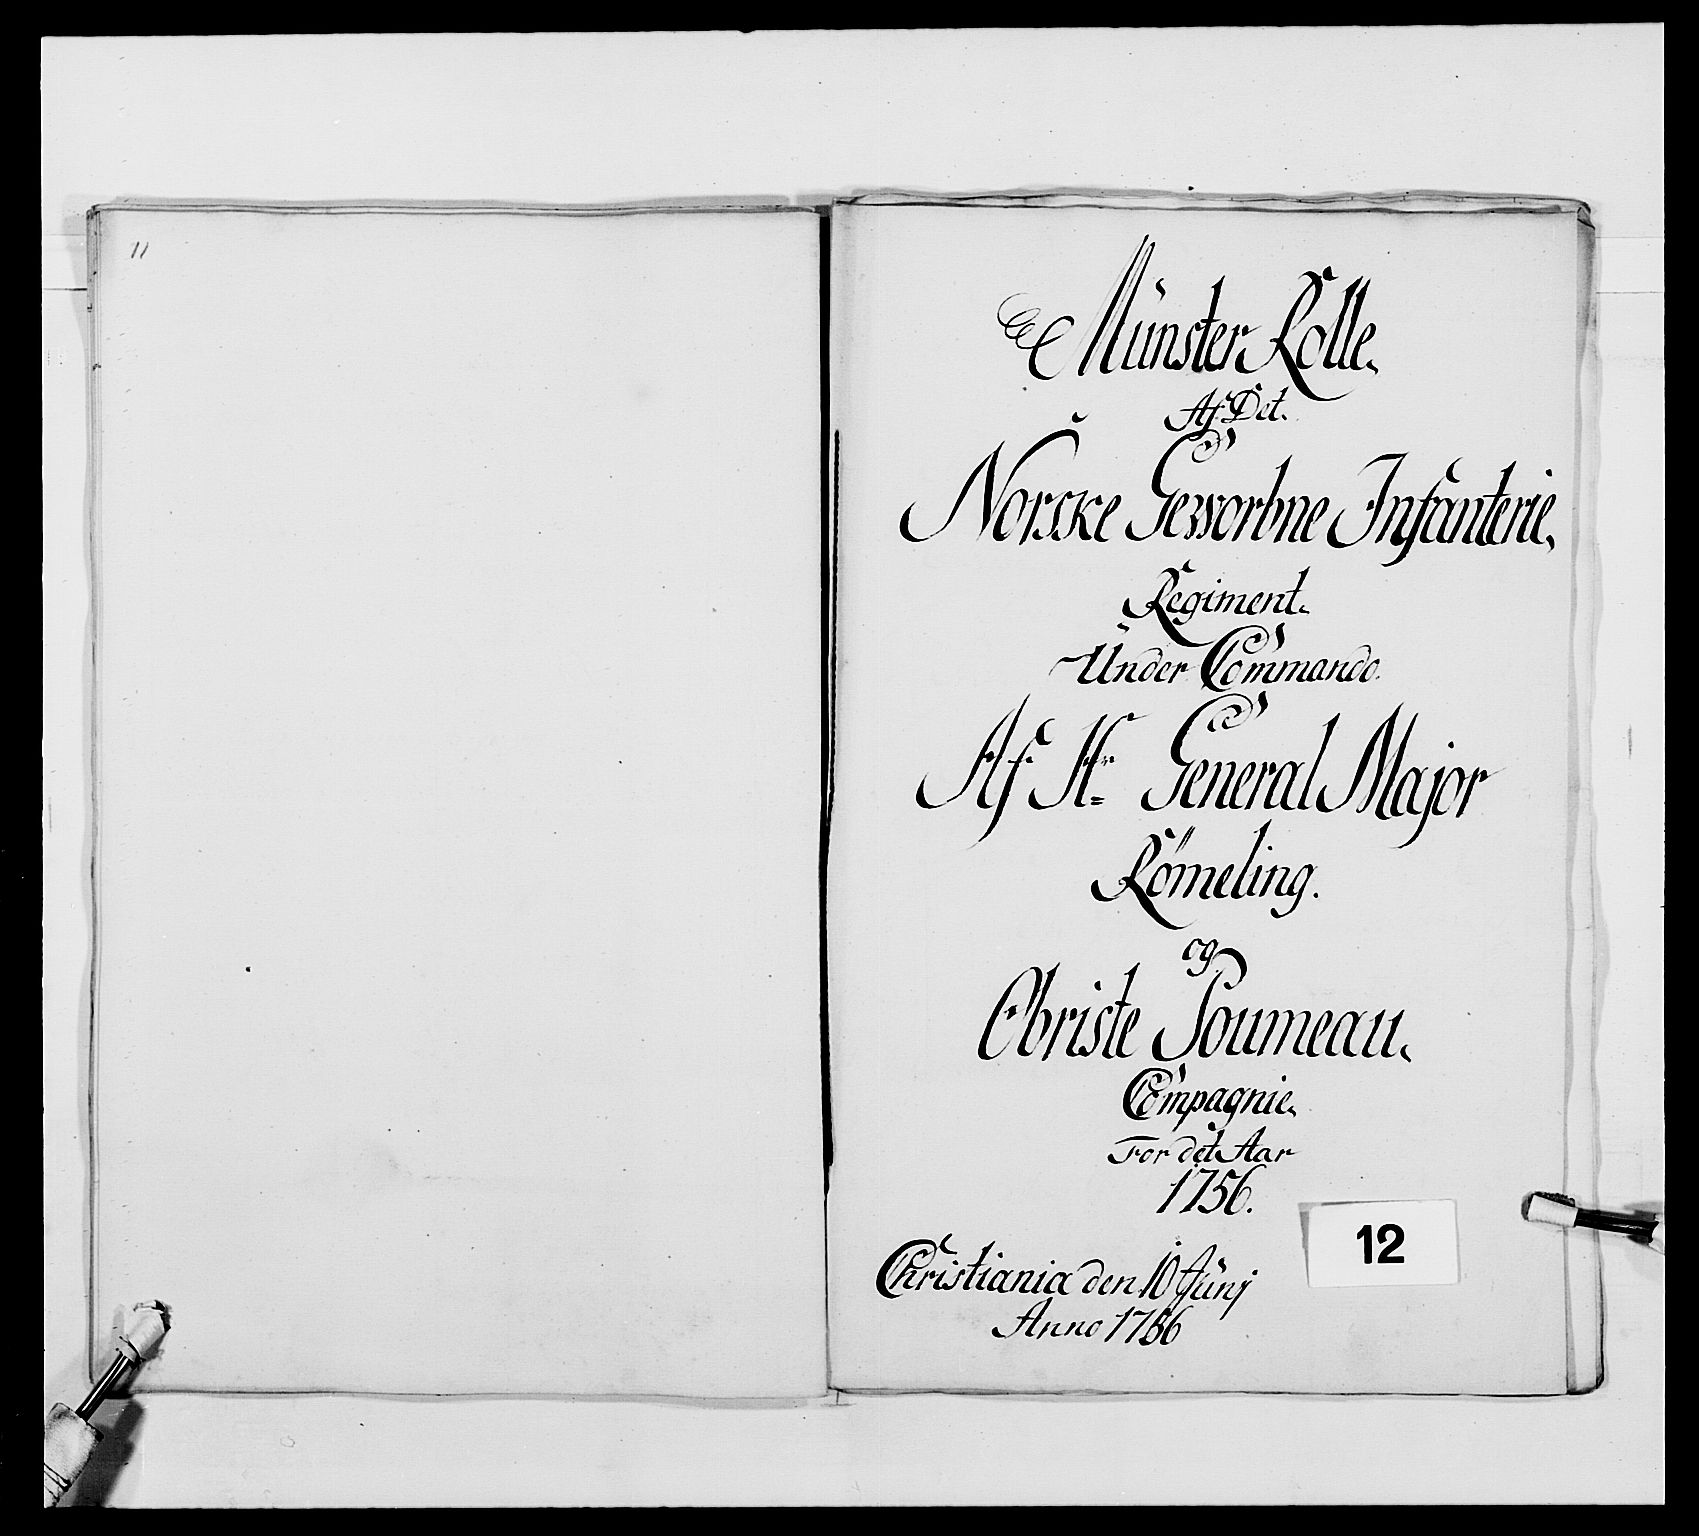 11
Münster Rolle.
Af Det.
Norske Geworbne Infanterie.
Regiment.
Under Commando.
Af Hr General Major
Römeling.
og
Obriste Poumeau.
Compagnie.
For det Aar
1756.
12
Christiania den 10 Junj
Anno 1756